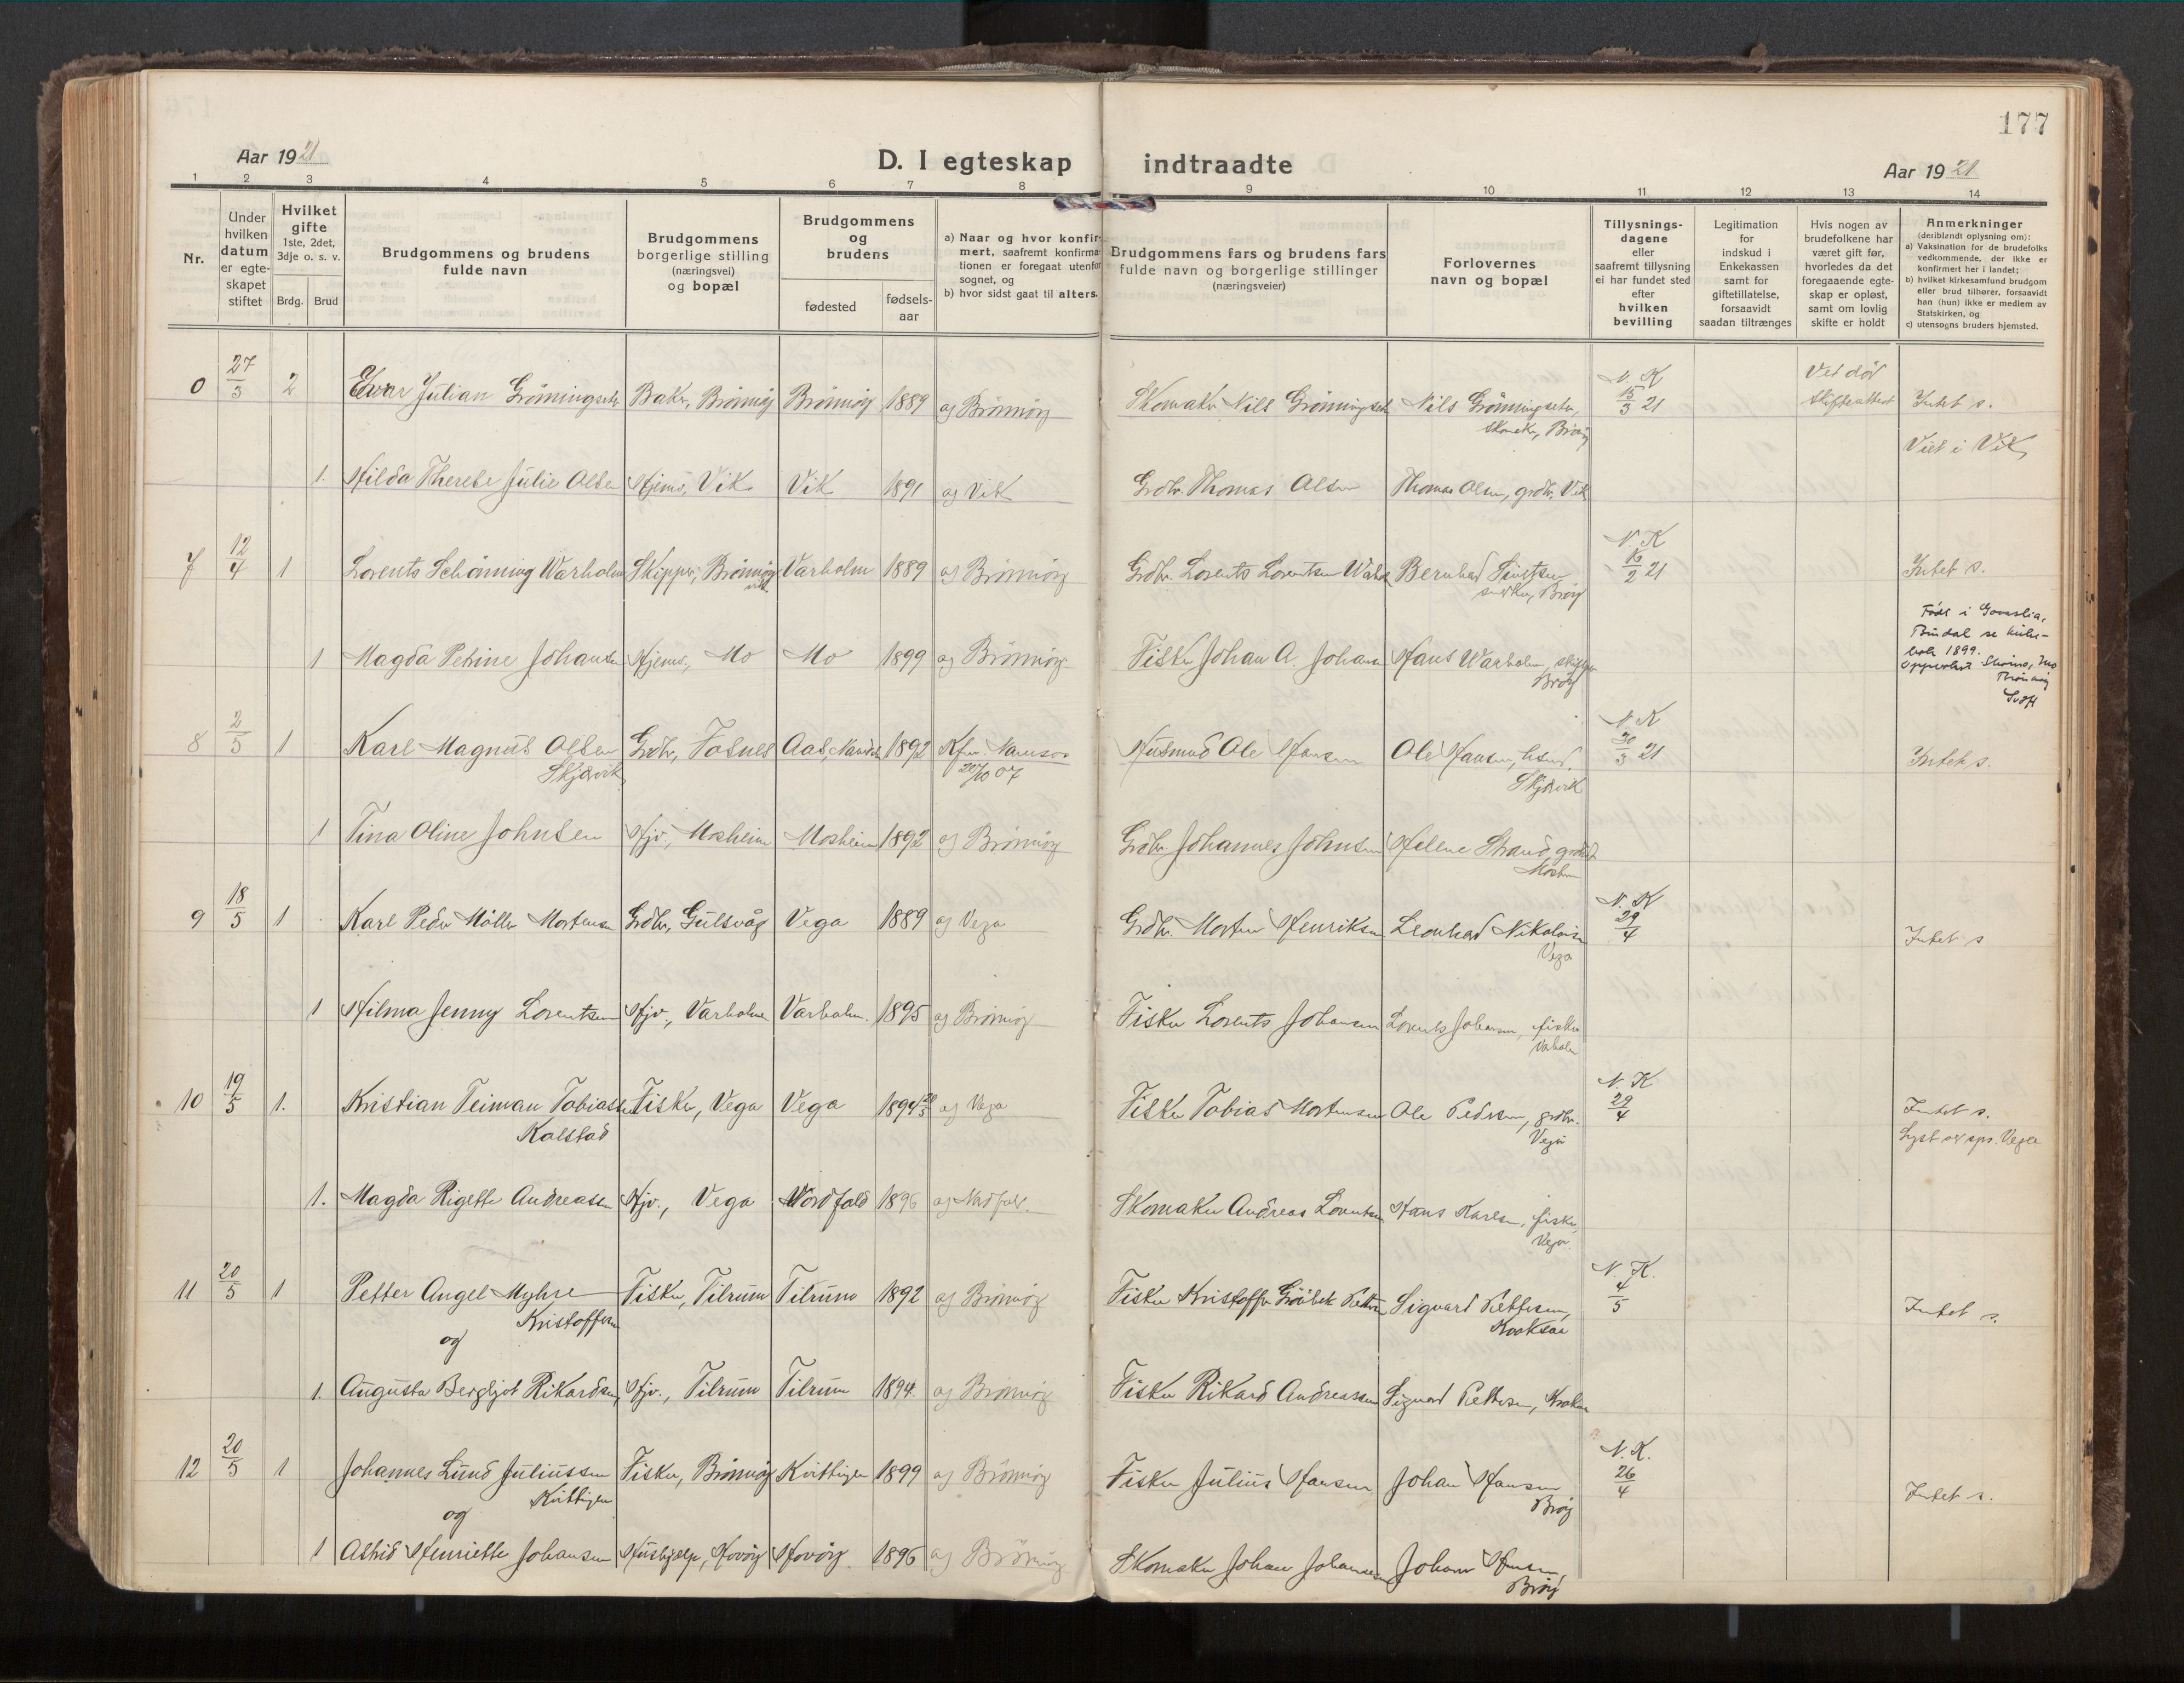 177
Aar 1921
D. I egteskap indtraadte
Aar 1921
1 2 3 4 5 6 7 8 9 10 11 12 13 14
Nr.
Under hvilken datum er egte-skapet stiftet
Hvilket gifte 1ste, 2det, 3dje o. s. v.
Brdg. Brud
Brudgommens og brudens fulde navn
Brudgommens borgerlige stilling (næringsvei) og bopæl
Brudgommens og brudens
fødested
fødsels-aar
a) Naar og hvor konfir-mert, saafremt konfirma-tionen er foregaat utenfor sognet, og
b) hvor sidst gaat til alters.
Brudgommens fars og brudens fars fulde navn og borgerlige stillinger (næringsveier)
Forlovernes navn og bopæl
Tillysnings-dagene eller saafremt tillysning ei har fundet sted efter hvilken bevilling
Legitimation for indskud i Enkekassen samt for giftetillatelse, forsaavidt saadan tiltrænges
Hvis nogen av brudefolkene har været gift før, hvorledes da det foregaaende egte-skap er opløst, samt om lovlig skifte er holdt
Anmerkninger (deriblandt oplysning om):
a) Vaksination for de brudefolks vedkommende, der ikke er konfirmert her i landet;
b) hvilket kirkesamfund brudgom eller brud tilhører, forsaavidt han (hun) ikke er medlem av Statskirken, og
c) utensogns bruders hjemsted.
27/3 2 Julian Grönningsæter Baker, Brönnöy Brönnöy 1889 og Brönnöy Skomaker Nils Grönningsæter Nils Grönningsæter, N. K 15/3 21 Ved död Intet s.
skomaker, Brönöy skifteattest
Viet i Vik
1. Hilda Therese Julie Olsen Hjemv, Vik Vik 1891 og Vik Grdbr. Thomas Olsen Thomas Olsen, grdbr. Vik
7 12/4 1 Lorents Schönning Varholm Skipper, Brönnöy Varholm 1889 og Brönnöy Grdbr. Lorents Lorentsen Bernhard N. K 16/2 21 Intet s.
1 Magda Petrine Johansen Hjemv, Mo Mo 1899 og Brönnöy Fisker Johan A. Johansen Hans Varholm, skipper
Bröy
Född i
Bindal se kirke-
bok 1899.
8 2/5 1 Karl Magnus Olsen Grdbr, Vosnes Aas, 1892 Kfm. Namsos Husmand Ole Hansen Ole Hansen, husmd. N. K 30/3 21 Intet s.
Skjærvik 20/10 07 Skjærvik
1 Tina Oline Johnsen Hjv., Mosheim Mosheim 1892 og Brönnöy Grdbr. Johannes Johnsen Helene Strand
9 18/5 1 Karl Peder Möller Mortensen Grdbr, Gulsvåg Vega 1889 og Vega Grdbr. Morten Henriksen Leonhard Nikolaisen N. K 29/4 Intet s
Vega
1 Hilma Jenny Lorentsen Hjv., Varholm Varholm. 1895 og Brönnöy Fisker Lorents Johansen Lorents Johansen, fisker
Varholm
10 19/5 1. Kristian Teiman Tobiassen Fisker, Vega Vega 1894 og Vega Fisker Tobias Mortensen Ole Pedersen, grdbr. N. K 29/4 Intet s.
Kalstad Vega Lyst av spr. Vega
1. Magda Rigette Andreassen Hjv., Vega Nordfold 1896 og Nordfold. Skomaker Andreas Lorentsen Hans Karlsen, fisker,
Vega.
11 20/5 1 Petter Angel Myhre Fisker, Tilrum Tilrum 1892 og Brönnöy Fisker Kristoffer Pettersen Sigvard Pettersen, N. K. 4/5 Intet s.
Kristoffersen
og
1. Augusta Bergljot Rikardsen, Hjv., Tilrum Tilrum 1894. og Brönnöy Fisker Rikard Andreassen Sigvard Pettersen,
12 20/5 1 Johannes Lund Juliussen Fisker, Brönnöy Kvittingen 1899 og Brönnöy Fisker Julius Hansen Johan Hansen N. K. 26/4 Intet s.
Kvittingen Bröy
og
1 Astrid Henriette Johansen Hushjælp, Havöy Havöy 1896 og Brönnöy Skomaker Johan Johannesen Johan Hansen,
Bröy